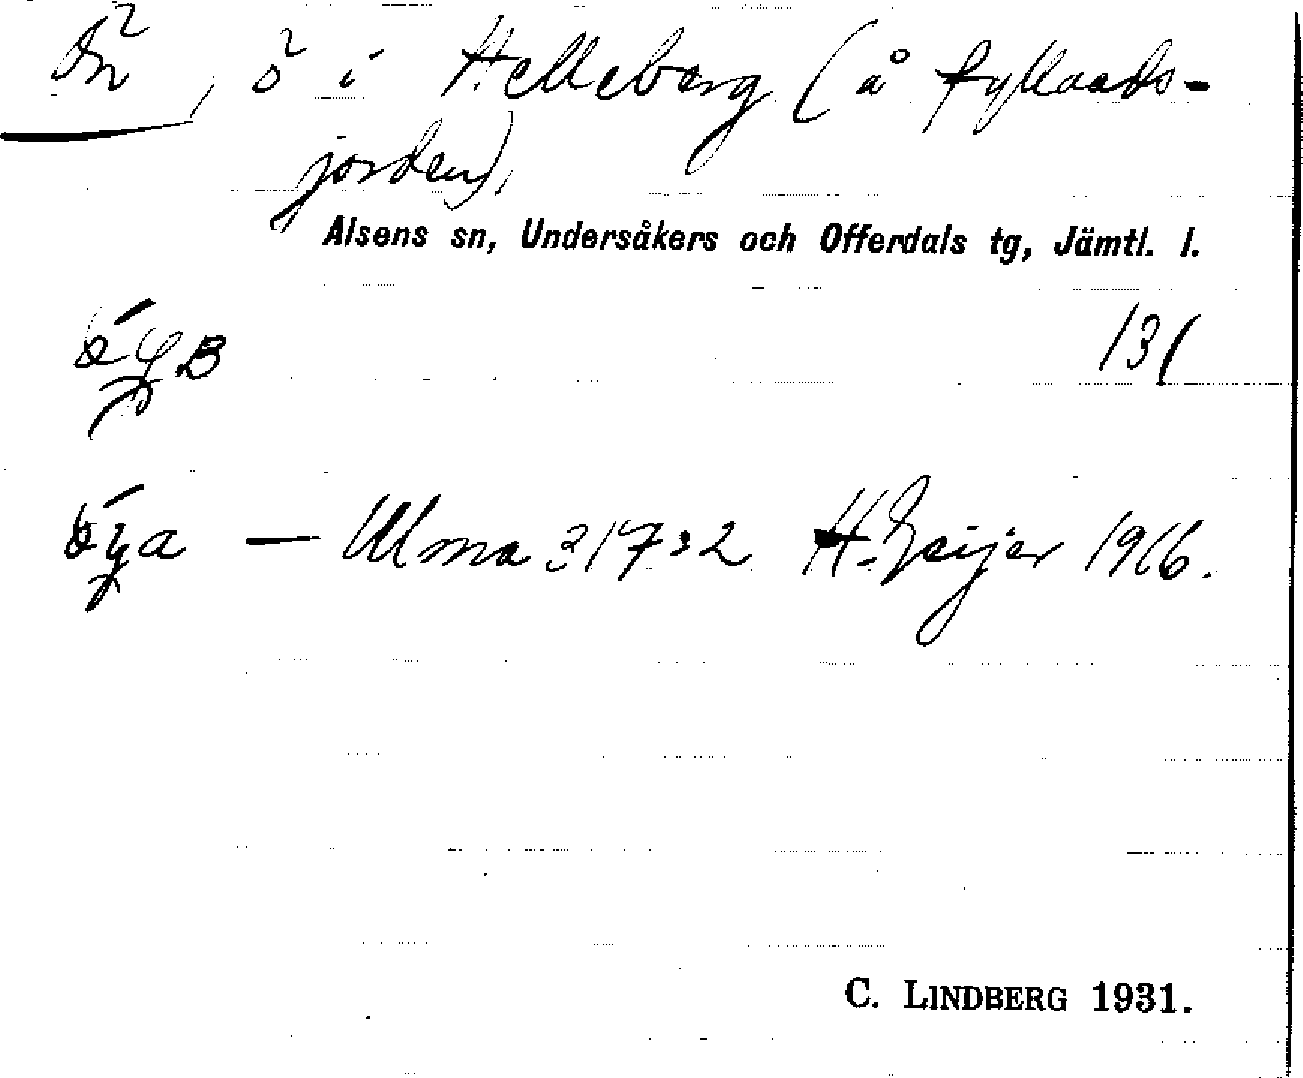 Ön, ö i Helleberg (å fyllnads-
jorden),
Alsens sn, Undersåkers och Offerdals tg, Jämtl. l.
131
— Ulma 317:2 H. Geijer 1916.
C. LINDBERG 1931.